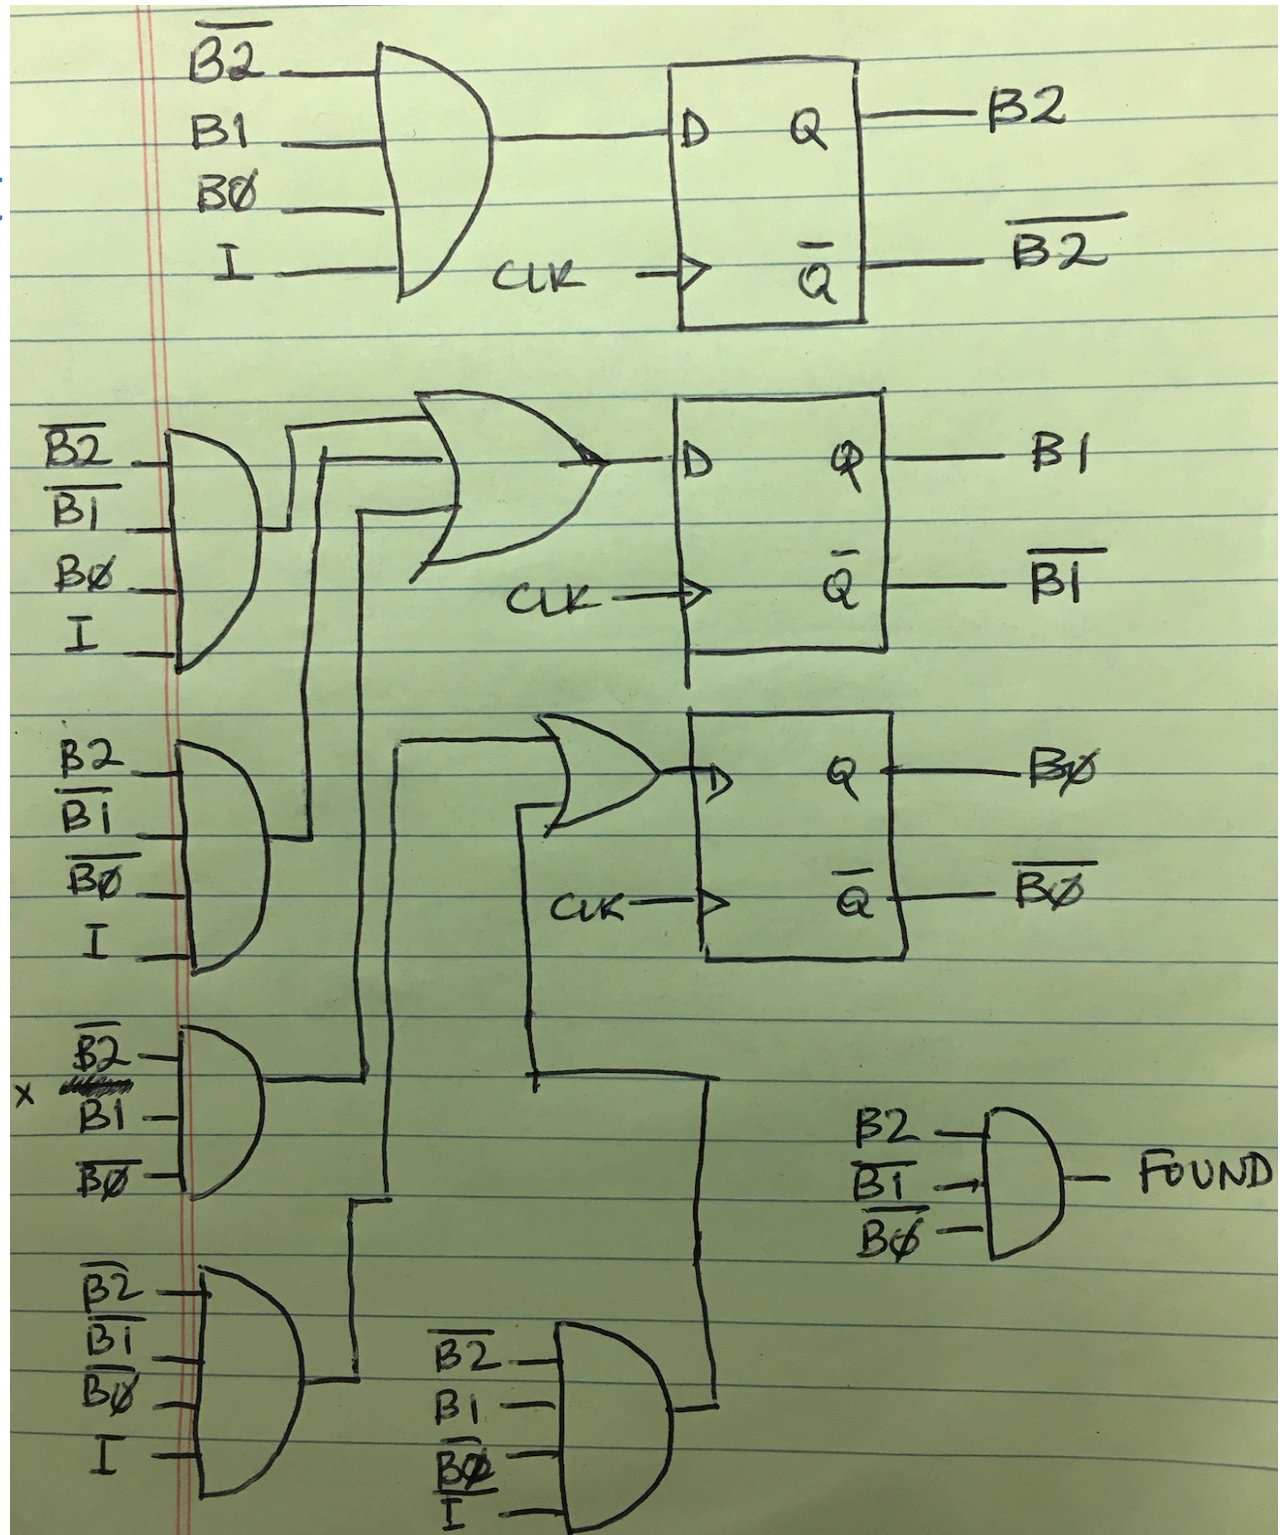 B̅2̅
B1
BØ
I
CLK
D
Q
Q̅
B2
B̅2̅
B̅2̅
B̅1̅
BØ
I
CLK
D
Q
Q̅
B1
B̅1̅
B2
B̅1̅
B̅Ø̅
I
CLK
D
Q
Q̅
BØ
B̅Ø̅
x
B̅2̅
B1
B̅Ø̅
B2
B̅1̅
B̅Ø̅
FOUND
B̅2̅
B̅1̅
B̅Ø̅
I
B̅2̅
B1
B̅Ø̅
I̅